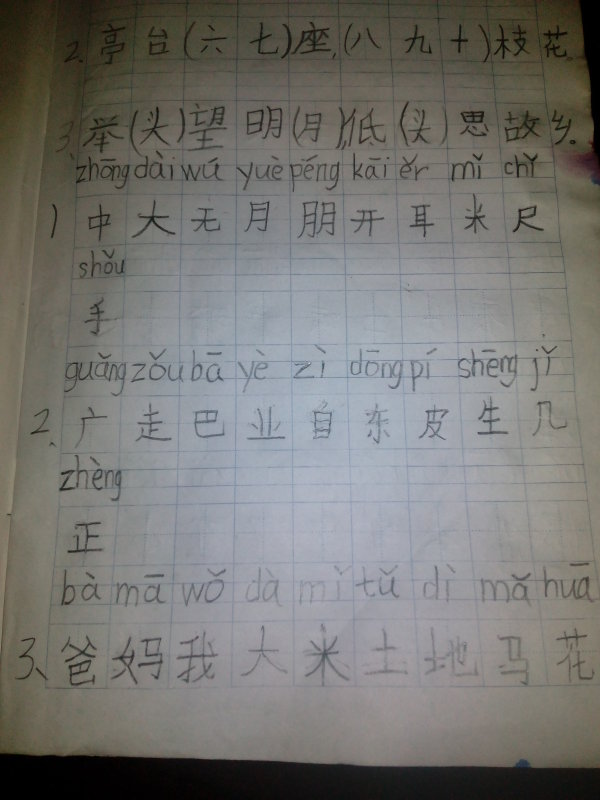 2. 亭台(六七)座,(八九十)枝花
3、举(头)望明(月),低(头)思故乡。
zhōng dài wú yuè péng kāi ěr mǐ chǐ
1 中大无月朋开耳米尺
shǒu
手
guǎng zǒu bā yè zì dōng pí shēng jǐ
2、广走巴业自东皮生几
zhèng
正
bà mā wǒ dà mǐ tǔ dì mǎ huā
3、爸妈我大米土地马花